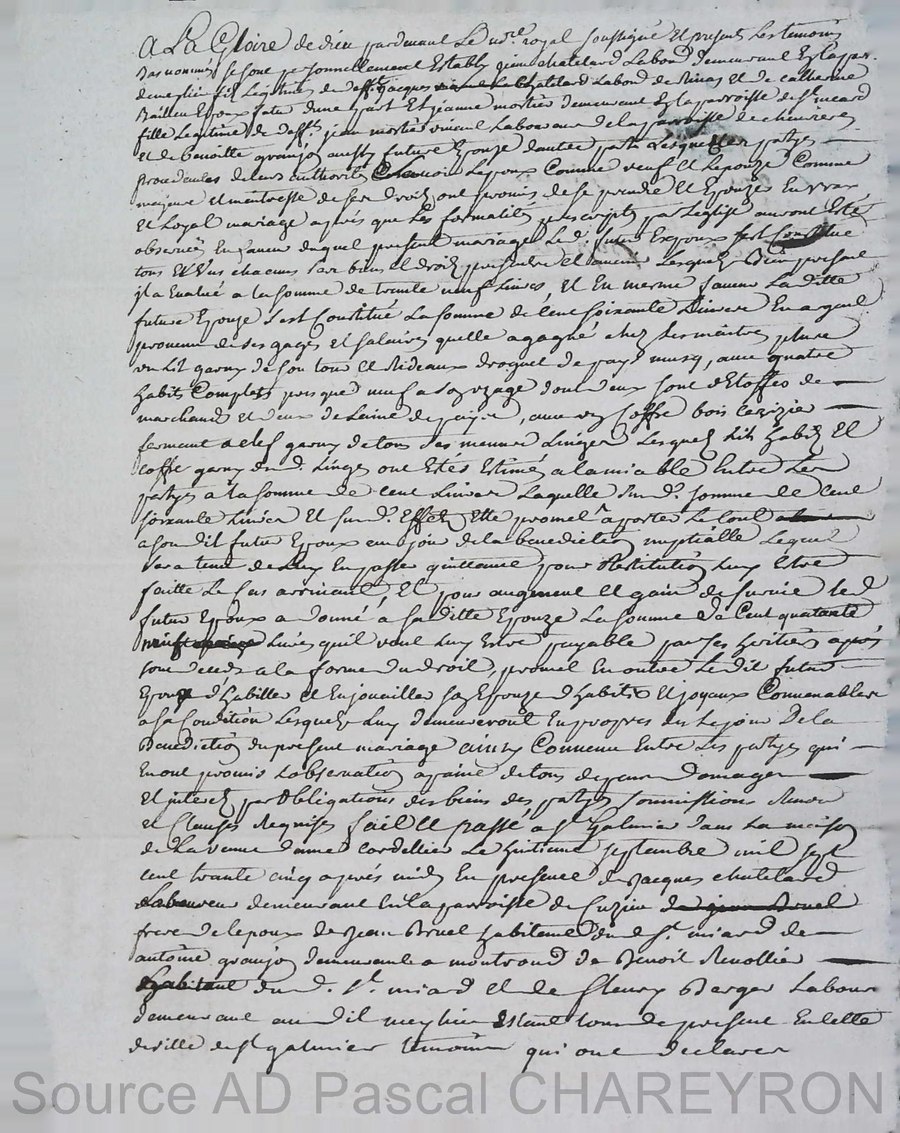 A La Gloire de dieu pardevant Le no.re royal soussigné Et present Les temoins
Bas nommes se sont personnellement Establis jean chatelard Labour demeurant Es la par.
de meylieu fils Legitime de deff.t jacques chatelard Labour de Rivas Et de catherine
Epoux futur dune part Et jeanne mortier demeurant Es la parroisse de S.t meard
fille Legitime de deff.t jean mortier vivant Laboureur de la parroisse de chevrieres
et de benoitte granjon aussy future Epouze dautre part Lesquelles partyes
procedantes de leurs authorités Lepoux Comme veuf Et Lepouze Comme
majeure et maitresse de ses droits ont promis de se prendre Et Epouzer En vray
Et Loyal mariage apres que Les formalités prescriptes par Leglise auront Esté
observées En faveur duquel present mariage Le d. futur Expoux sest Constitué
tous Et Uns chacuns ses biens et droits presents et avenir Lesquels Biens presents
jl a Evalué a la somme de trente neuf Livres, Et En meme faveur La ditte
future Epouze sest Constitué La somme de Cent soixante Livres En argent
provenu de ses gages Et salaires quelle a gagné chez Les maitres plus
un Lit garny de son tour et Rideaux droguet de pays musq, avec quatre
habits Complets presque neuf a son usage dont deux sont d'Etoffes de
marchand et deux de Laine de pays, avec un Coffre bois cerizier
fermant a clef garny de tous ses menus Linges Lesquels Lits habits Et
coffre garny du d. Linges ont Estés Estimés a Lamiable Entre Les
partyes a la somme de cent Livres Laquelle sud.e somme de cent
soixante Livres Et sus d.s Effets Elle promet aporter Le tout
a son dit futur Epoux au jour de la benediction nuptialle Lequel
sera tenu de Luy En passer quittance pour Restitution Luy Etre
faitte Le Cas arrivant, Et pour augment et gain de survie Le d
futur Epoux a donné a sa ditte Epouze La somme de Cent quatante
Livres quil veut Luy Estre payable par ses heritiers après
son deceds a la forme du droit, promet En outre Le dit futur
Epoux d'habiller et Enjouailler sa Epouze d'habits Et joyaux Convenables
a sa Condition Lesquels Luy demeureront En propres des Le jour De la
Benediction du present mariage ainsy Convenu Entre Les partyes qui
En ont promis Lobservation a paine de tous depens Domages
Et interets par obligations des biens des partyes soumissions Renon
et Clauses Requises fait Et passé a S.t Galmier dans La maison
de La veuve dame Cordellier Le huitieme septembre mil sept
cent trante cinq après midy En presence de Jacques chatelard
Laboureur demeurant En la parroisse de Cuzieu de jean Bruel
frere de lepoux de Jean Bruel habitant du d S.t miard de
antoine granjon demeurant a montrond de Benoit Renollier
habitant du d. S.t miard et de fleury Berger Labour
demeurant au dit meylieu Estant tous de present En cette
de ville de S.t galmier temoins qui ont declarer
Source AD Pascal CHAREYRON